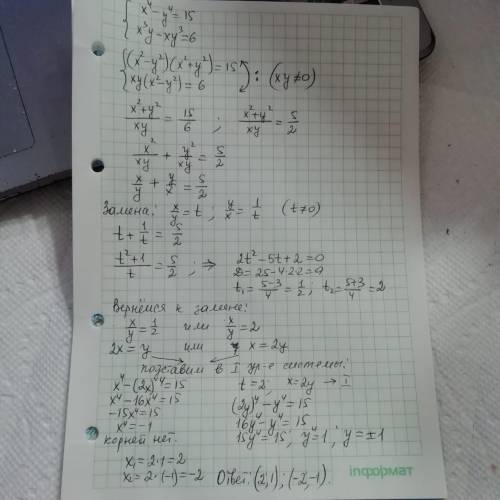 { x⁴ - y⁴ = 15
x³y - xy³ = 6
{ (x² - y²)(x² + y²) = 15
xy(x² - y²) = 6 : (xy ≠ 0)
(x² + y²)/xy = 15/6 ; (x² + y²)/xy = 5/2
x²/xy + y²/xy = 5/2
x/y + y/x = 5/2
Замена: x/y = t ; y/x = 1/t (t ≠ 0)
t + 1/t = 5/2
(t² + 1)/t = 5/2 ; ⇒ 2t² - 5t + 2 = 0
D = 25 - 4·2·2 = 9
t₁ = (5-3)/4 = 1/2 ; t₂ = (5+3)/4 = 2
Вернёмся к замене:
x/y = 1/2 или x/y = 2
2x = y или x = 2y
подставим в I ур-е системы:
x⁴ - (2x)⁴ = 15 t = 2; x = 2y → I
x⁴ - 16x⁴ = 15 (2y)⁴ - y⁴ = 15
-15x⁴ = 15 16y⁴ - y⁴ = 15
x⁴ = -1 15y⁴ = 15; y⁴ = 1 ; y = ±1
корней нет.
x₁ = 2·1 = 2
x₂ = 2·(-1) = -2 Ответ: (2; 1) ; (-2; -1).
інформат